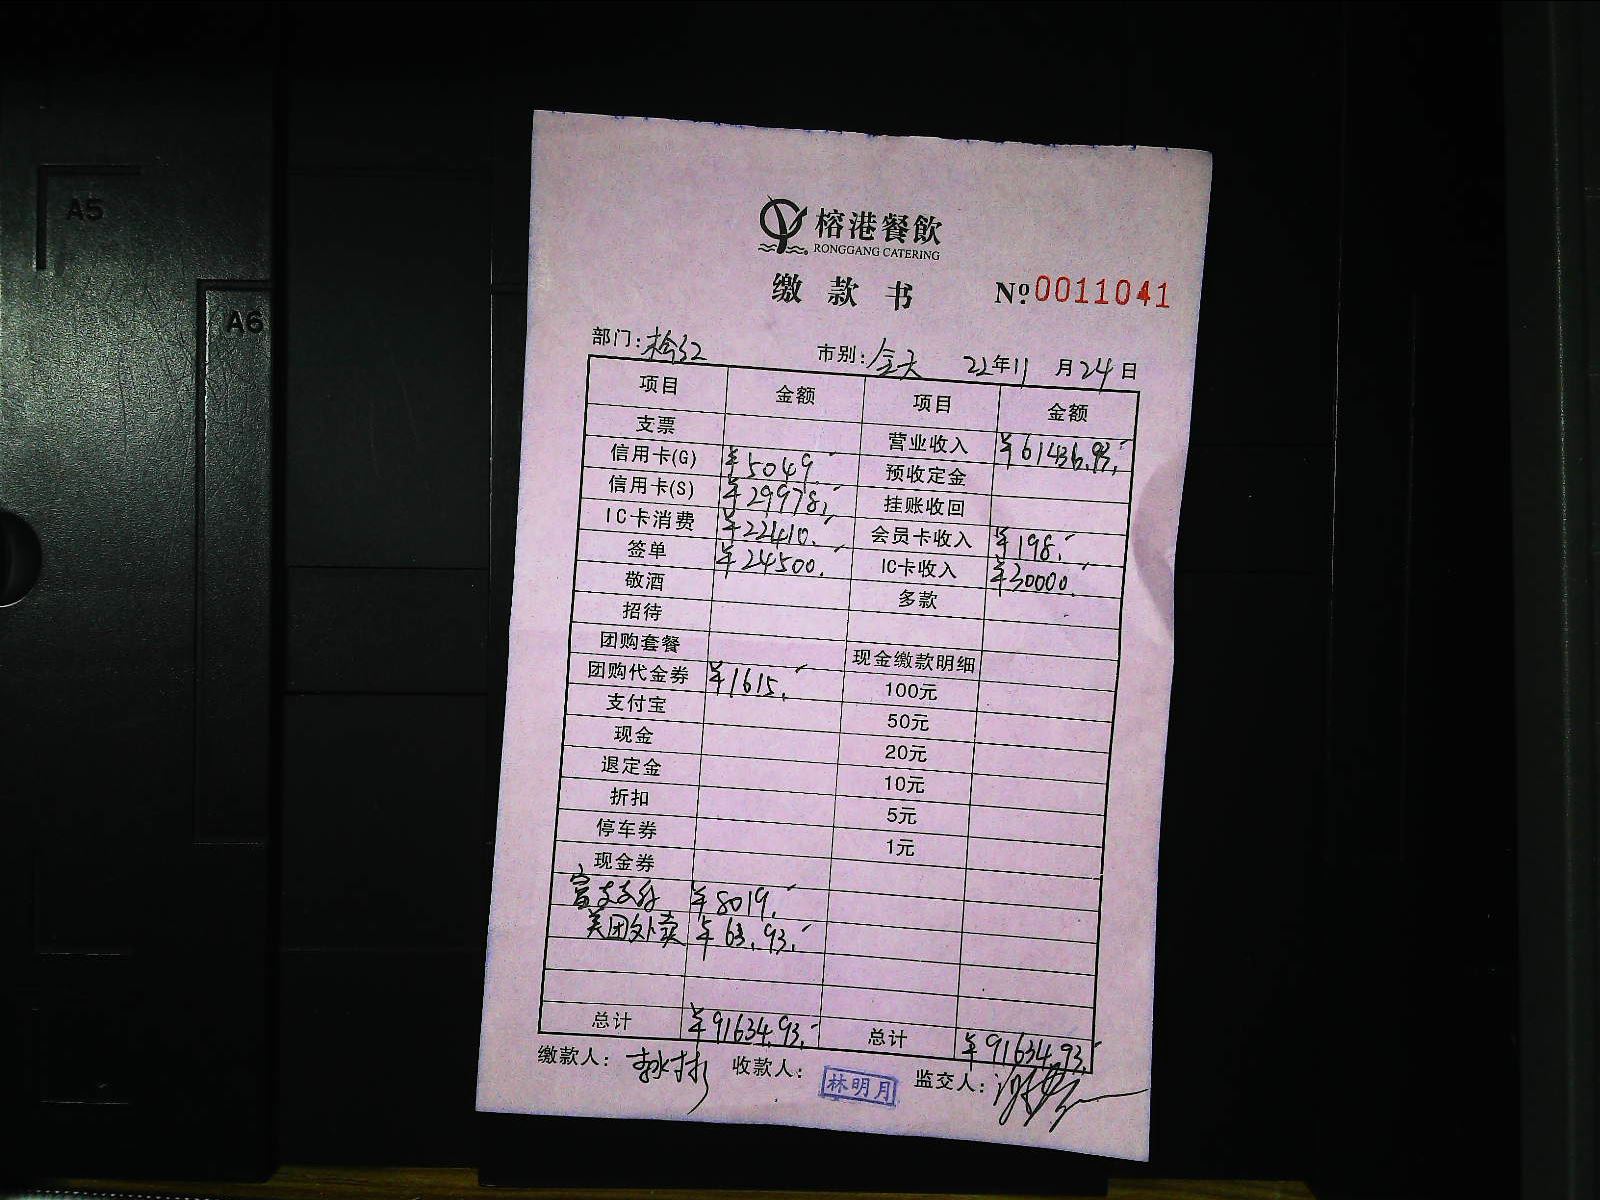 A5
A6
榕港餐飲
RONGGANG CATERING
缴款书 Nº 0011041
部门: 市别:全天 22年11月24日
项目 金额 项目 金额
支票 营业收入 ¥61436.93
信用卡(G) ¥5049. 预收定金
信用卡(S) ¥29978. 挂账收回
IC卡消费 ¥22410. 会员卡收入 ¥198.
签单 ¥24500. IC卡收入 ¥30000.
敬酒 多款
招待
团购套餐 现金缴款明细
团购代金券 ¥1615. 100元
支付宝 50元
现金 20元
退定金 10元
折扣 5元
停车券 1元
现金券
富友支付 ¥8019.
美团外卖 ¥63.93.
总计 ¥91634.93. 总计 ¥91634.93.
缴款人: 收款人: 林明月 监交人: